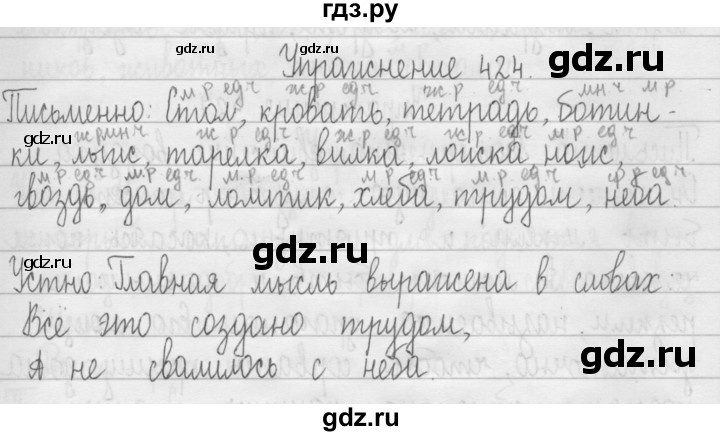 гдз.ру
gdz.ru gdz.ru gdz.ru
Упражнение 424.
м р ед ч ж р ед ч ж р ед ч мн ч м р
Письменно: Стол, кровать, тетрадь, ботин-
ж р мн ч ж р ед ч ж р ед ч ж р ед ч м р ед ч
ки, лыж, тарелка, вилка, ложка нож,
м р ед ч м р ед ч м р ед ч м р ед ч м р ед ч
гвоздь, дом, ломтик, хлеба, трудом, неба.
gdz.ru gdz.ru
Устно Главная мысль выражена в словах:
Всё это создано трудом,
gdz.ru gdz.ru gdz.ru
А не свалилось с неба.
gdz.ru